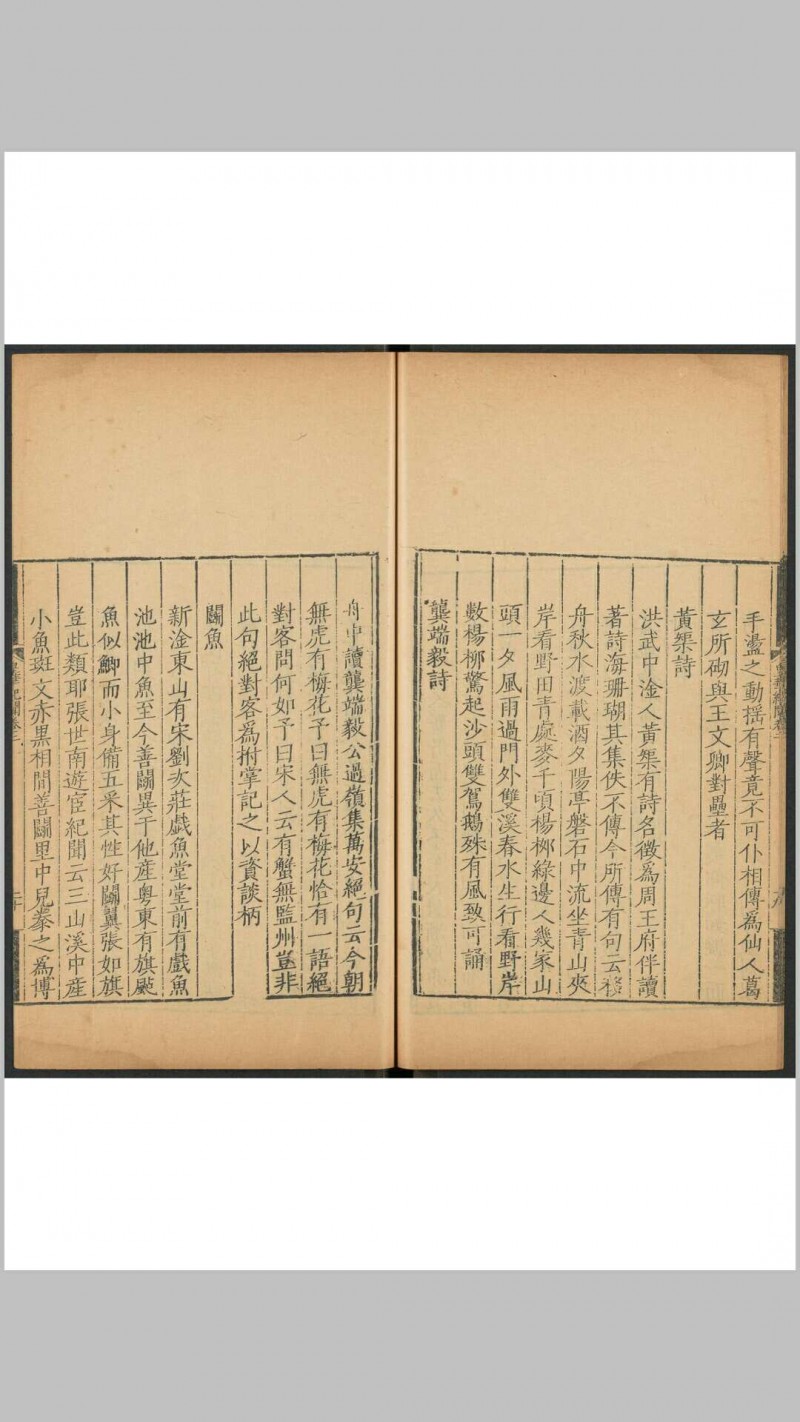 手盪之動揺有聲竟不可仆相傳爲仙人葛
玄所砌與王文卿對壘者
黃榘詩
洪武中淦人黃榘有詩名徵爲周王府伴讀
著詩海珊瑚其集佚不傳今所傳有句云移
舟秋水渡載酒夕陽亭磐石中流坐青山夾
岸看野田青處麥千頃楊柳綠邊人幾家山
頭一夕風雨過門外雙溪春水生行看野岸
數楊柳驚起沙頭雙駕鵝殊有風致可誦
龔端毅詩
舟中讀龔端毅公過嶺集萬安絕句云今朝
無虎有梅花予曰無虎有梅花恰有一語絕
對客問何如予曰宋人云有蟹無監州豈非
此句絕對客爲拊掌記之以資談柄
鬭魚
新淦東山有宋劉次莊戲魚堂堂前有戲魚
池池中魚至今善鬭異于他産粵東有旗颭
魚似鯽而小身備五采其性好鬭翼張如旗
豈此類耶張世南遊宦紀聞云三山溪中産
小魚斑文赤黑相間善鬭里中兒豢之爲博